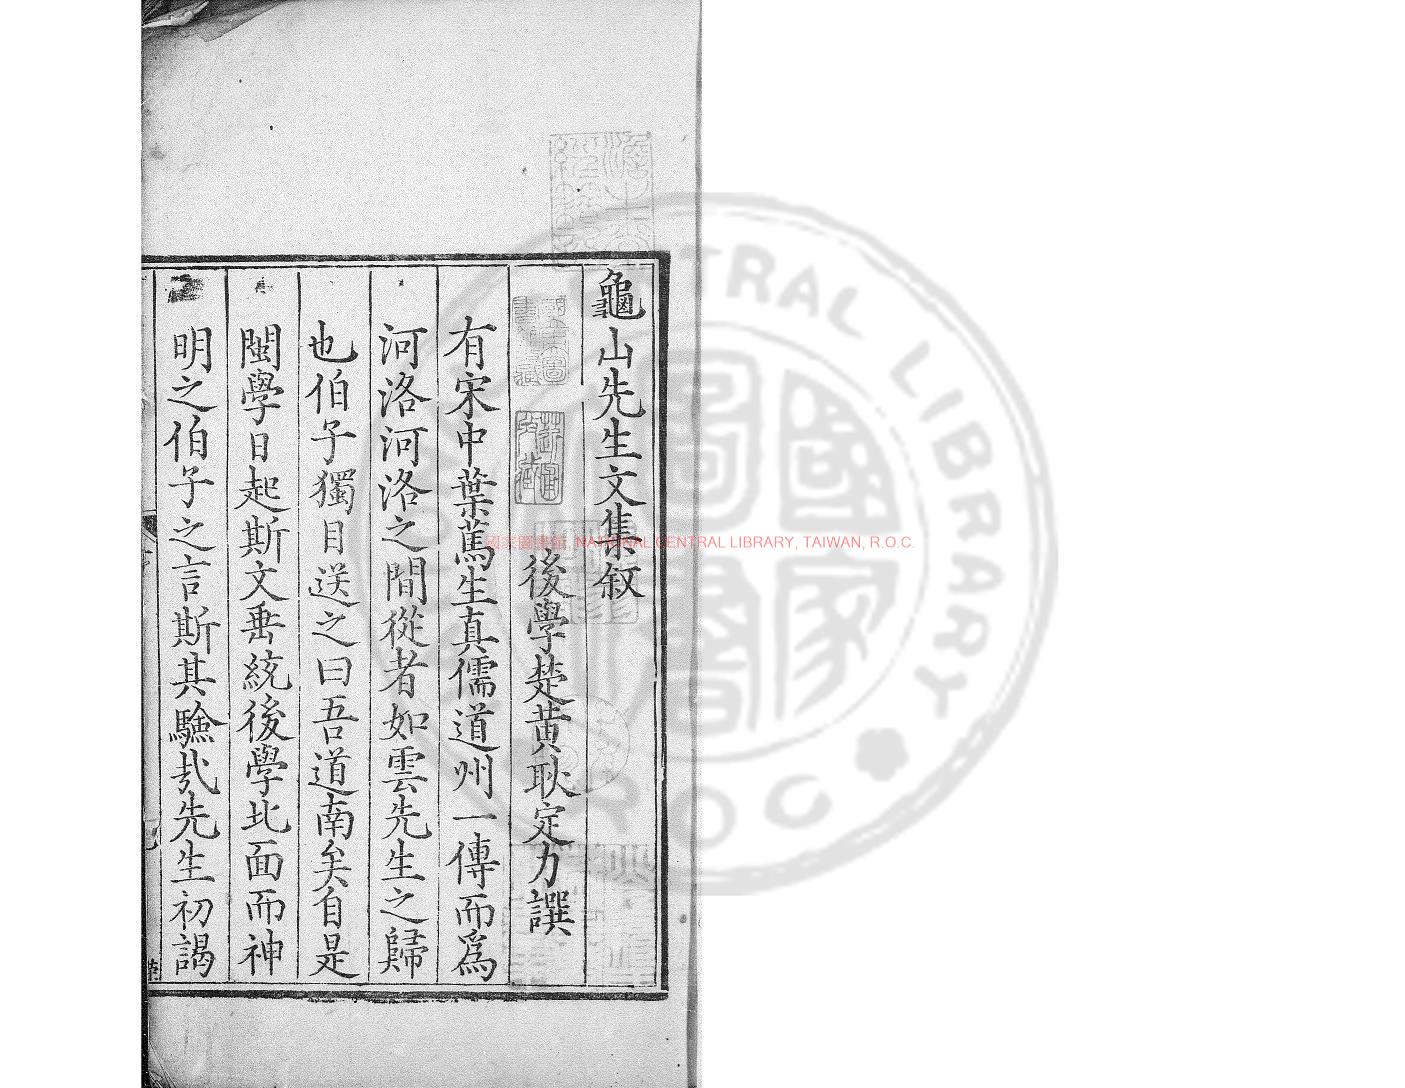 龜山先生文集叙
後學楚黃耿定力譔
有宋中葉篤生真儒道州一傳而爲
河洛河洛之間從者如雲先生之歸
也伯子獨目送之曰吾道南矣自是
閩學日起斯文垂統後學北面而神
明之伯子之言斯其驗哉先生初謁
國家圖書館, NATIONAL CENTRAL LIBRARY, TAIWAN, R.O.C.